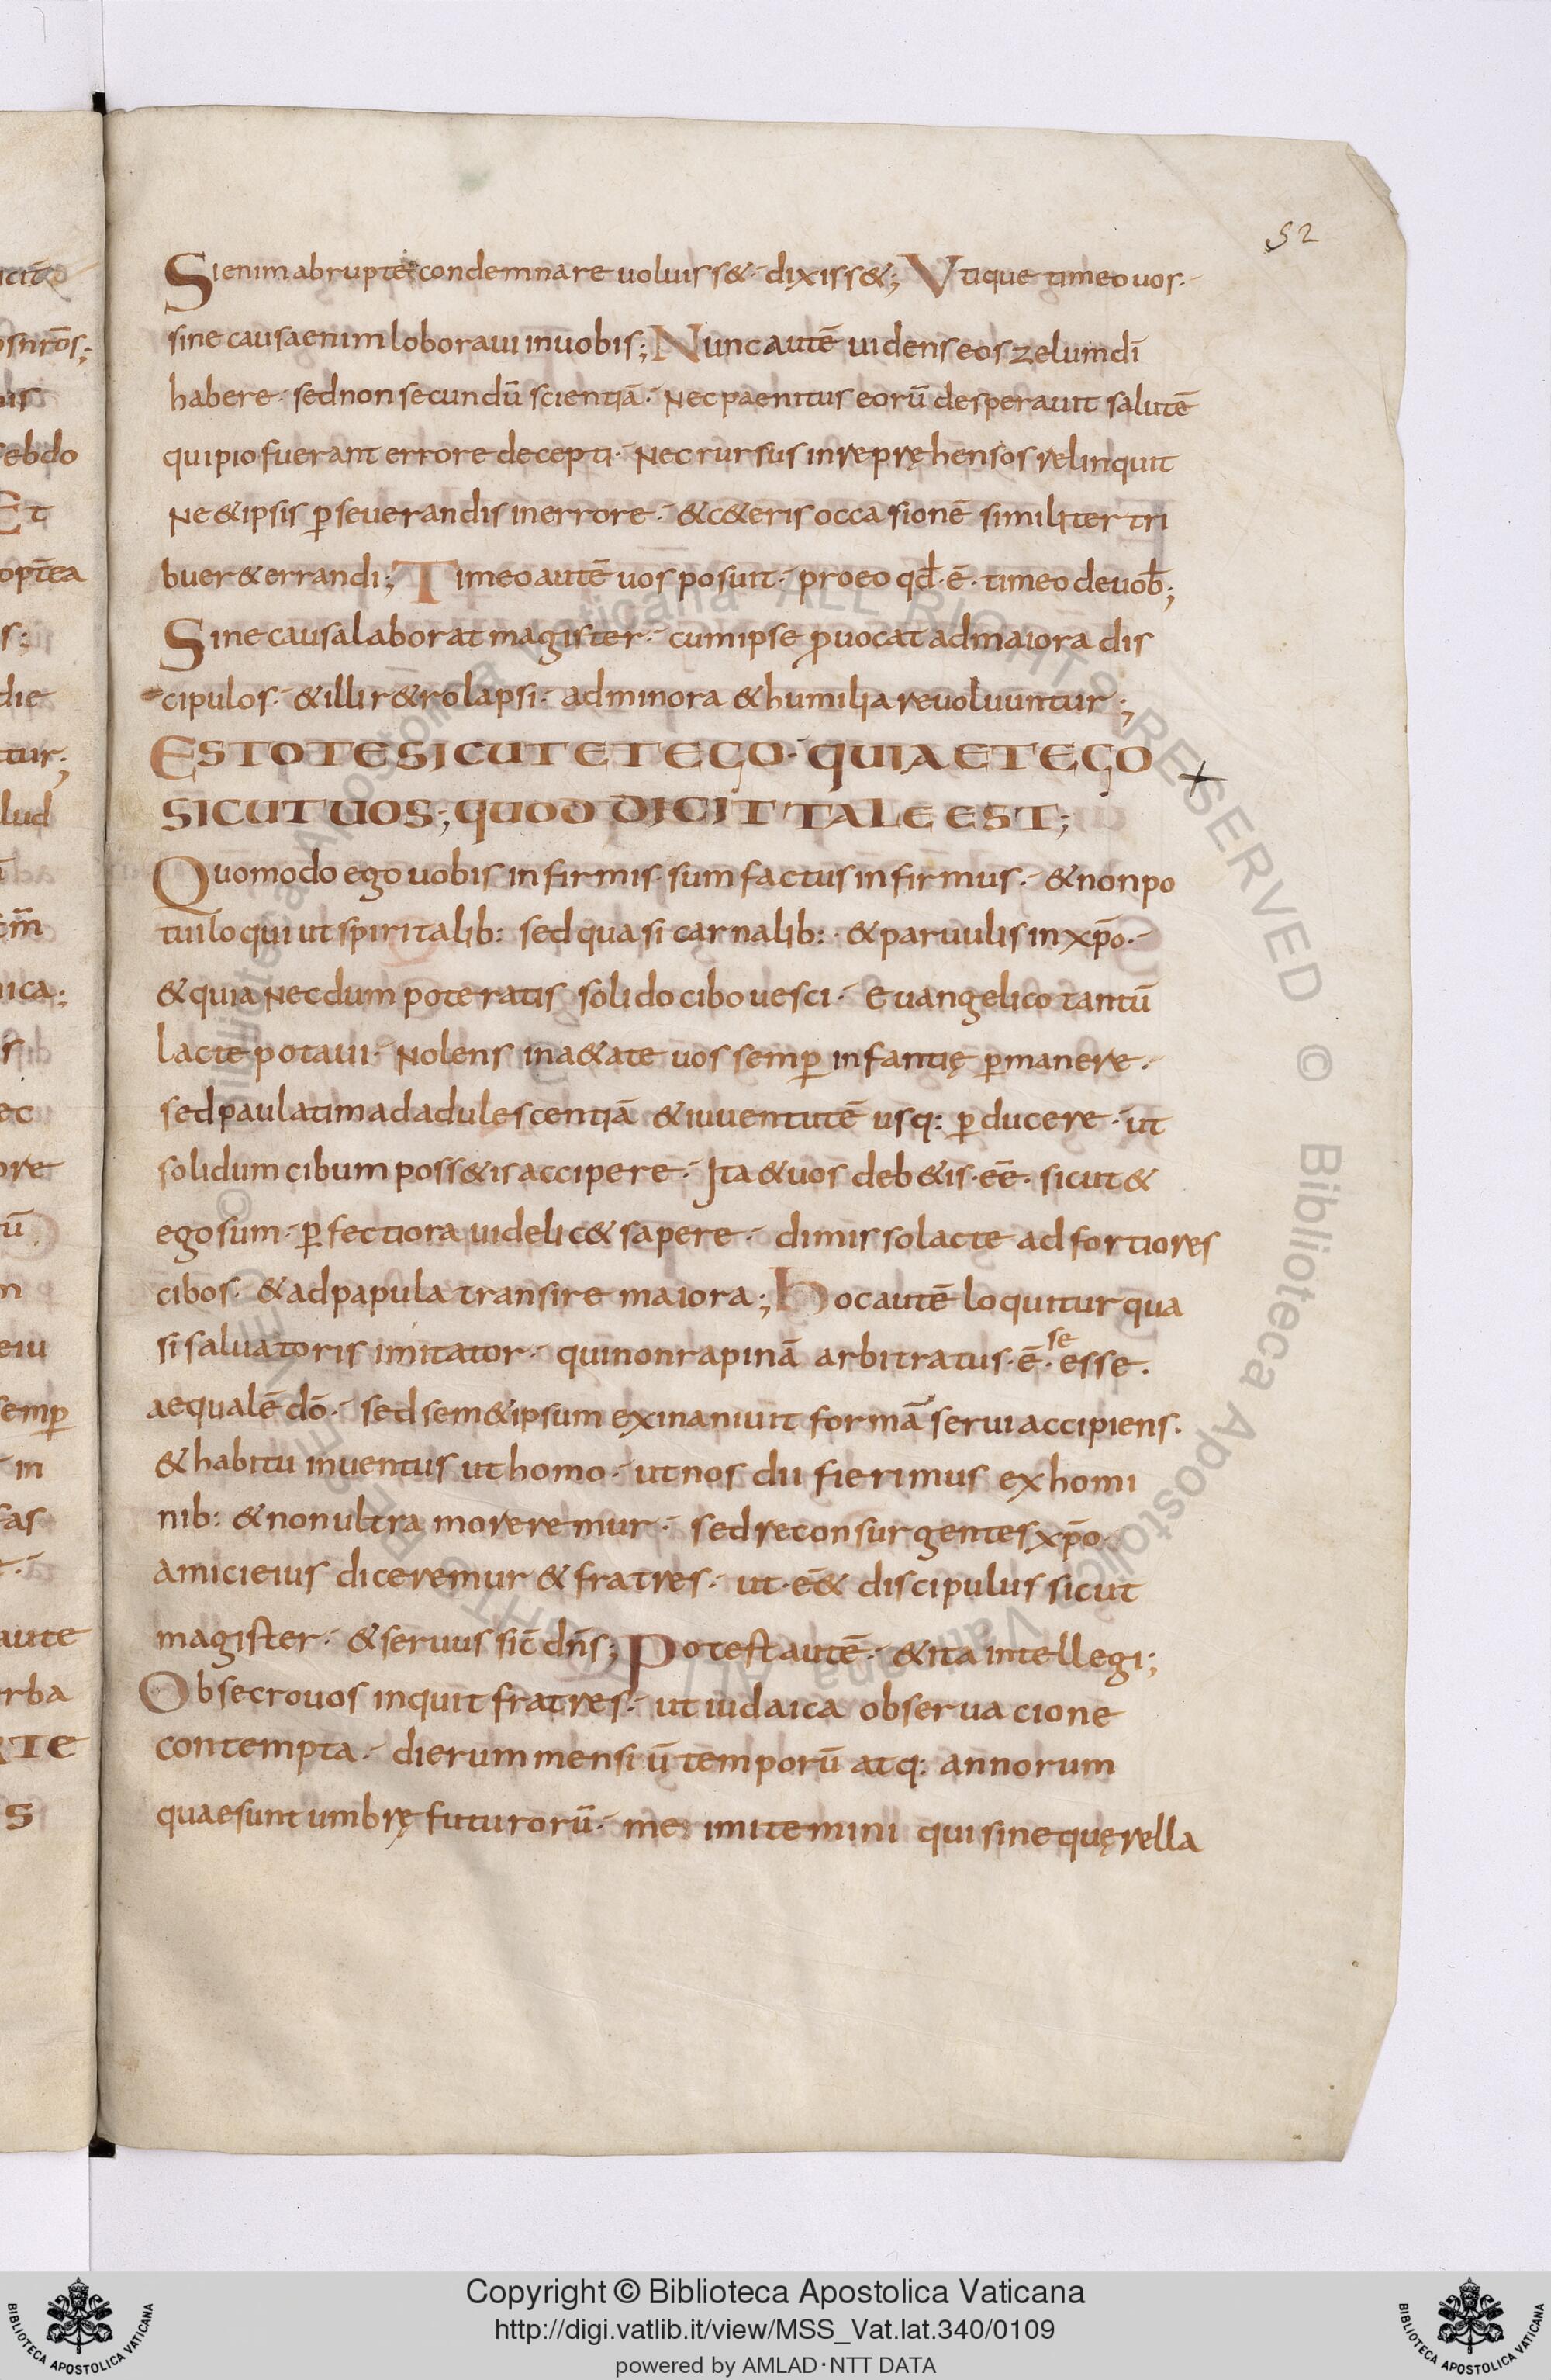 52
Si enim abrupte condemnare uoluiss&·- dixiss&; Vtique timeo uos·-
sine causa enim loboraui in uobis; Nunc autē uidens eos zelum dī
habere· sed non secundū scientiā·- Nec paenitus eorū desperauit salutē
qui pio fuerant errore decepti·- Nec rursus inrepręhensos relinquit
Ne & ipsis ꝑseuerandis in errore·- & c&eris occasionē similiter tri
buer& errandi; Timeo autē uos posuit·- pro eo qd̄·ē· timeo de uob̄;
Sine causa laborat magister·- cum ipse ꝓuocat ad maiora dis
cipulos·- & illi r&rolapsi·- ad minora & humilia reuoluuntur;
ESTOTE SICUT ET EGO·- QUIA ET EGO
SICUT UOS; QUOD DICIT TALE EST;
Quomodo ego uobis infirmis· sum factus infirmus·- & non po
tui loqui ut spiritalib: sed quasi carnalib:· & paruulis in xp̄o·-
& quia Necdum poteratis solido cibo uesci·- Euangelico tantū
lacte potaui·- Nolens in a&ate uos semꝑ infantię ꝑmanere·-
sed paulatim ad adulescentiā & iuuentutē usq: ꝑducere·- ut
solidum cibum poss&is accipere·- Ita & uos deb&is·eē· sicut &
ego sum·- ꝑfectiora uidelic& sapere·- dimisso lacte ad fortiores
cibos· & ad papula transire maiora; Hoc autē loquitur qua
si saluatoris imitator·- qui non rapinā arbitratus·ē· se esse·
aequalē dō·- sed sem&ipsum exinaniuit formā serui accipiens·
& habitu inuentus ut homo·- ut nos dii fierimus ex homi
nib: & non ultra moreremur·- sed reconsurgentes xp̄o·
amici eius diceremur & fratres·- ut·eē& discipulus sicut
magister·- & seruus sic̄ dn̄s; Potest autē·- & ita intellegi;
Obsecro uos inquit fratres·- ut iudaica obseruacione
contempta·- dierum mensiū temporū atq: annorum
quae sunt umbrę futurorū·- me imitemini qui sine quęrella
Copyright © Biblioteca Apostolica Vaticana
http://digi.vatlib.it/view/MSS_Vat.lat.340/0109
powered by AMLAD·NTT DATA
BIBLIOTECA APOSTOLICA VATICANA
BIBLIOTECA APOSTOLICA VATICANA